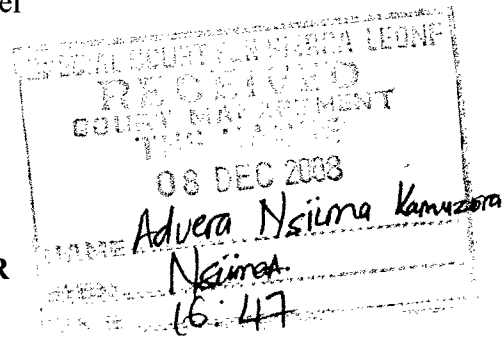 SPECIAL COURT FOR SIERRA LEONE
RECEIVED
COURT MANAGEMENT
THE HAGUE
08 DEC 2008
NAME Advera Nsiima Kamuzora
SIGN Nsiima.
16:47
R